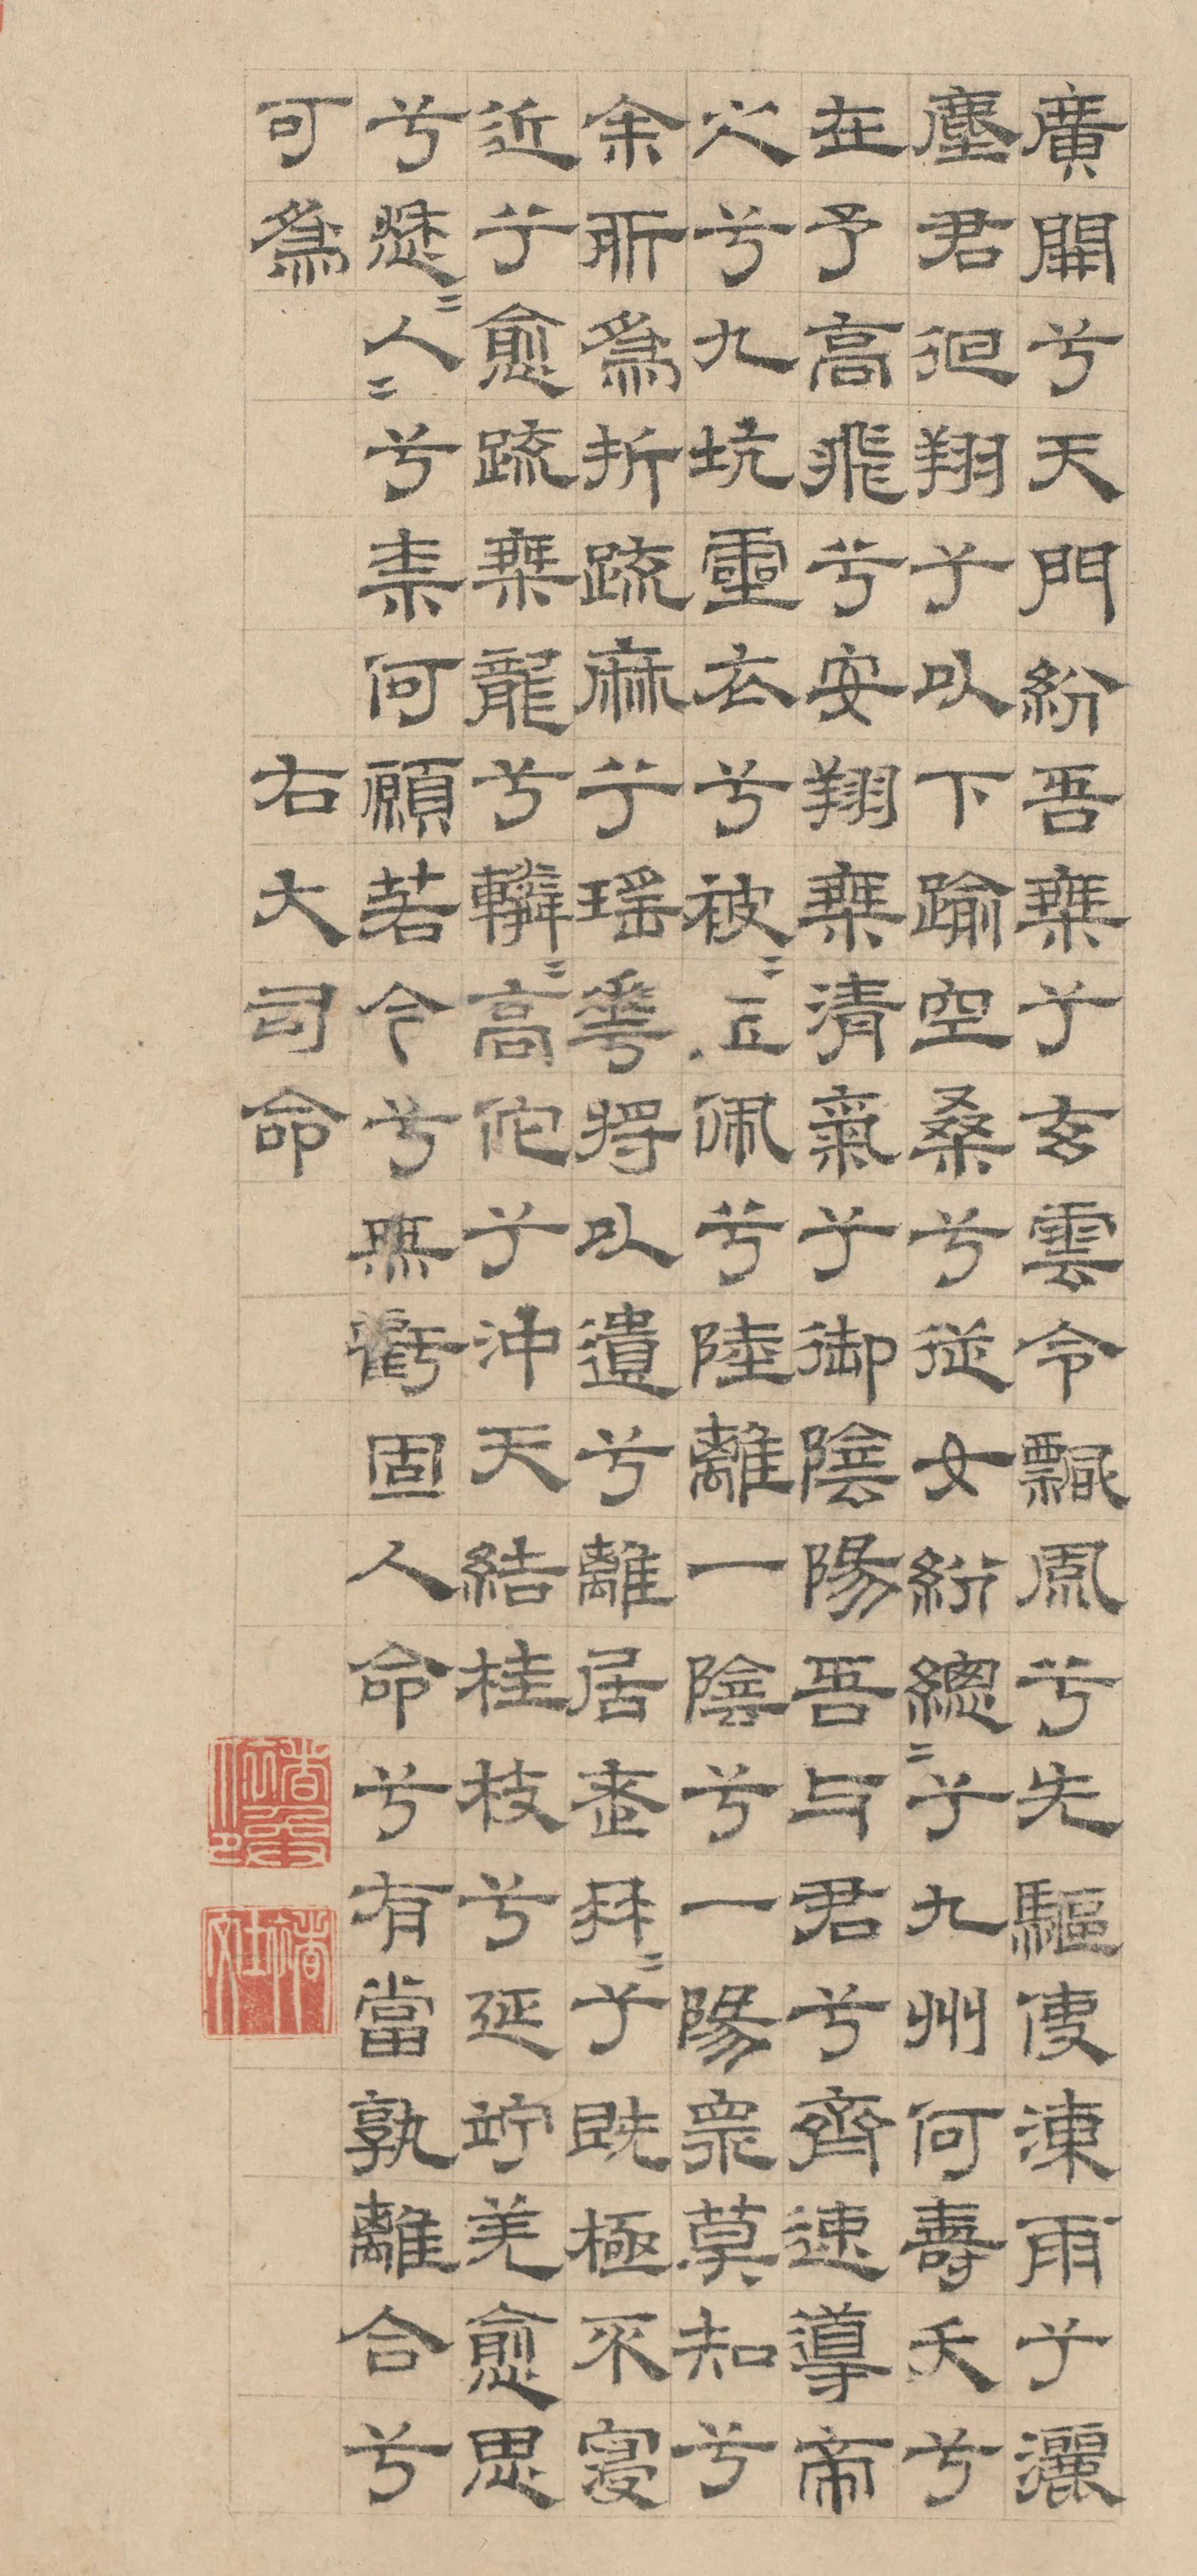 廣開兮天門紛吾椉兮玄雲令飄風兮先驅使涷雨兮灑
塵君徊翔兮以下踰空桑兮從女紛總〻兮九州何壽夭兮
在予高飛兮安翔椉清氣兮御陰陽吾与君兮齊速導帝
之兮九坑靈衣兮被〻玉佩兮陸離一陰兮一陽衆莫知兮
余所爲折疏麻兮瑤華將以遺兮離居老冉〻兮既極不寖
近兮愈疏椉龍兮轔〻高佗兮沖天結桂枝兮延竚羌愈思
兮愁〻人〻兮柰何願若今兮無虧固人命兮有當孰離合兮
可爲
右大司命